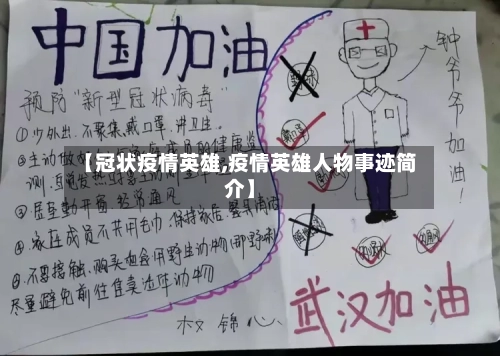 中国加油
预防"新型冠状病毒"
①少外出、不聚集,戴口罩,讲卫生。
②主动做
成员的健康监
测,自觉发热
【冠状疫情英雄,疫情英雄人物事迹简
介】
③居室勤开窗,经常通风
④家庭成员不共用毛巾,保持家居、餐具清洁
⑤不要接触、购买和食用野生动物(即野味)
尽量避免前往售卖活体动物
钟爷爷加油!
武汉加油